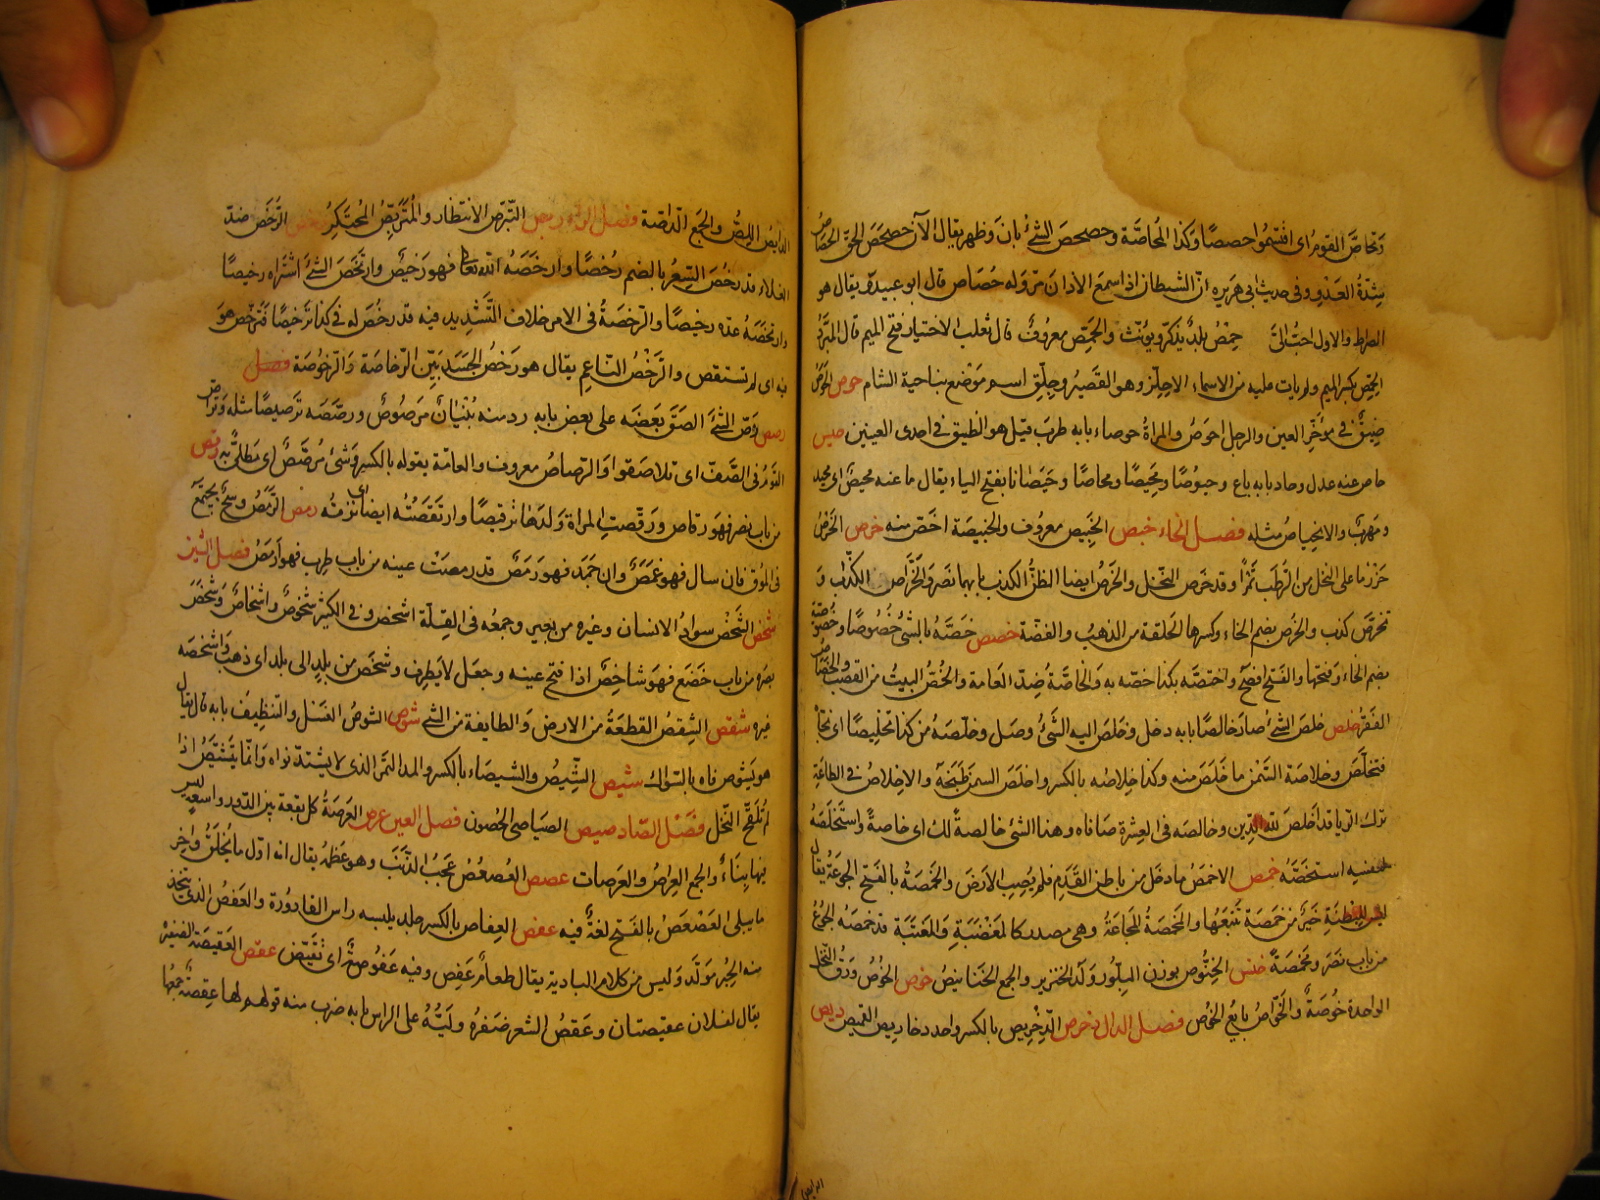 وتحاصَّ القوم اى اقتسموا حصصًا وكذا المُحاصَّة وحصحص الشئ بانَ وظهر يقال الآن حصحصَ الحق الحُصاص
شِدّةُ العَدْوِ وفى حديث ابى هريره انّ الشيطان اذا سمعَ الاذان مرّ وله حُصَاص قال ابو عبيدة يقال هو
الضراط والاول احبُّ الىَّ حِمْصُ بلدٌ يذكّر ويؤنّث والحِمَّص معروفٌ قال ثعلب الاختيار فتح الميم قال المبرّدُ
الحِمِّص بكسر الميم ولم يات عليه من الاسماء الا حِلِّز وهو القصير وجِلِّق اسم مَوْضع بناحية الشام حوص الحَوَصُ
ضِيقٌ فى مؤخَّر العين والرجل احوَصُ والمراة حوصاء بابه طرِب قيل هو الضيق فى احدى العينين حيص
حاص عنه عدل وحاد بابه باع وحيوُصًا ومَحِيصًا ومحاصًا وحَيَصَانا بفتح الياء يقال ما عنه محيصٌ اى محيد
ومَهربٌ والانحياصُ مثله فصل الخاء خبص الخَبِيص معروف والخبيصَة اخصّ منه خرص الخَرْصُ
حَزْرُ ما على النخل من الرُّطَب تمْرًا وقد خرَص النّخل والخَرْصُ ايضا الظنُّ الكذب بابهما نصَر والخَرّاص الكذّاب و
تخرّصَ كذب والخُرص بضم الخاء وكسرها الحلقة من الذهبُ والفضّة خصص خصّهُ بالشئ خُصُوصًا وخُصوصيّة
بضم الخاء وفتحها والفتح افصَحُ واختصّه بكذا خصّه به والخاصّة ضِدّ العَامة والخُصُّ البيتُ من القصَب والخَصَاصُ
الفَقرُ خلص خلَصَ الشئ صار خالصًا بابه دخل وخَلَصَ اليه الشَّئُ وصَل وخلّصَهُ من كذا تخليصًا اى نجّاه
فتخلّص وخلاصة السَّمْنِ ما خَلَصَ منه وكذا خِلاصُه بالكسر واخلَصَ السمنَ طَبَخَهُ والاخلاصُ فى الطاعة
ترك الرّيا قد اخلصَ لله الدِّين وخالصَه فى العِشرة صافاه وهذا الشئ خالصةٌ لك اى خاصةً واستَخْلصهُ
لنفسه استخصَّهُ خمص الاخمصُ ما دخل من باطن القَدَمِ فلم يُصِبِ الارضَ والخَمْصَةُ بالفَتح الجوعَةُ يقال
ليس للبِطْنَةِ خيرٌ من خَمْصَة تَتبَعُها والمَخمَصَة المجاعَةُ وهى مصدر كالمَغْضَبَةِ والمَعْتَبَة قد خمَصَه الجُوعُ
من باب نصَرَ ومَخمَصَةً خنص الخِنَّوْص بوزن البِلَّوْر وَلَدُ الخنزير والجمع الخَنَانيصُ خوص الخُوصُ وَرَقُ النّخل
الواحدة خُوصَةٌ والخَوّاصُ بايعُ الخُوصِ فصل الدال دخرص الدِّخرِيص بالكسر واحد دخاريص القميص ديص
الدايصُ اللِّصُّ والجَمعُ الدّاصَة فصل الراء ربص التَّرَبّص الانتظار والمُتَربِّصُ المُحتَكِرُ رخص الرُّخْص ضدّ
الغلاء قد رخُصَ السِّعرُ بالضم رُخْصًا وارخَصَهُ الله تعالى فهو رَخيصٌ وارتخَصَ الشئَ اشتراه رخيصًا
وارتخَصَهُ عدّه رخيصًا والرُّخصَةُ فى الامر خلاف التَّشْدِيد فيه قد رخّصَ له فى كذا ترخيصًا فترخّص هو
فيه اى لم تستقص والرَّخْصُ النّاعِم يقال هو رَخصُ الجَسَدِ بيّن الرّخاصَة والرّخُوصَة فصل
رصص رَصّ الشئ الصَقَ بعضَه على بعض بابه رد منه بُنْيانٌ مَرصُوصٌ ورصّصَه ترصيصًا مثله وتراصّ
القَومُ فى الصَّفّ اى تلاصَقوا والرّصاصُ معروف والعامّة يقوله بالكسر وشئ مُرصَّصٌ اى مَطلىٌّ به رقص
من باب نصر فهو رقاص ورَقّصتِ المراة وَلَدهَا ترقيصًا وارتقصَتْه ايضا اى نزته رمص الرّمَصُ وسَخٌ يجتمع
فى المُوْق فان سال فهو غمَصٌ وان جَمَد فهو رَمَصٌ قد رمصَتْ عينه من باب طِرب فهو ارمَصُ فصل الشين
شخص الشَّخْصُ سوادُ الانسان وغيره من بعير وجمعُه فى القِلّة اشخُص وفى الكثير شُخوصٌ واشخاصٌ وشَخَصَ
بصَرُه من باب خَضَع فهو شَاخِصٌ اذا فتح عينه وجعَل لا يَطرِف وشخَص من بلدٍ الى بلد اى ذهب واشخصَه
غيره شقص الشِّقصُ القطعَةُ من الارض والطايفة من الشئ شوص الشوصُ الغسَل والتنظِيفُ بابه قال يقال
هو يَشوص فاه بالسّواك شيص الشِّيصُ والشيصَاء بالكسر والمد التَّمر الذى لا يشتدّ نواه وانّما يتشيَّصُ اذا
لم تُلَقَّحِ النّخل فَصْل الصّاد صيص الصياصى الحُصُون فصل العين عرص العَرْصَةُ كل بقعة بين الدّور واسعةٍ ليس
فيها بِنَاءٌ والجمع العِرَاصُ والعَرصات عصص العُصعُصُ عَجْبُ الذَّنَب وهو عَظمُه يقال انه اوّل ما يُخلَقُ واخر
ما يبلى والعَصْعَصُ بالفَتح لغةٌ فيه عفص العِفاص بالكسر جلد يلبسه راس القارُورة والعَفصُ الذى يتخذ
منه الحِبْر مولّد وليس من كلام البادية يقال طعامٌ عَفِص وفيه عَفُوصةٌ اى تقبّض عقص العَقيصَة الضفيرة
يقال لفلان عقيصتان وعَقصُ الشعر ضَفرُه ولَيُّهُ على الراس بابه ضرب منه قولهم لها عِقصَةٌ جمعُهَا
الدايص